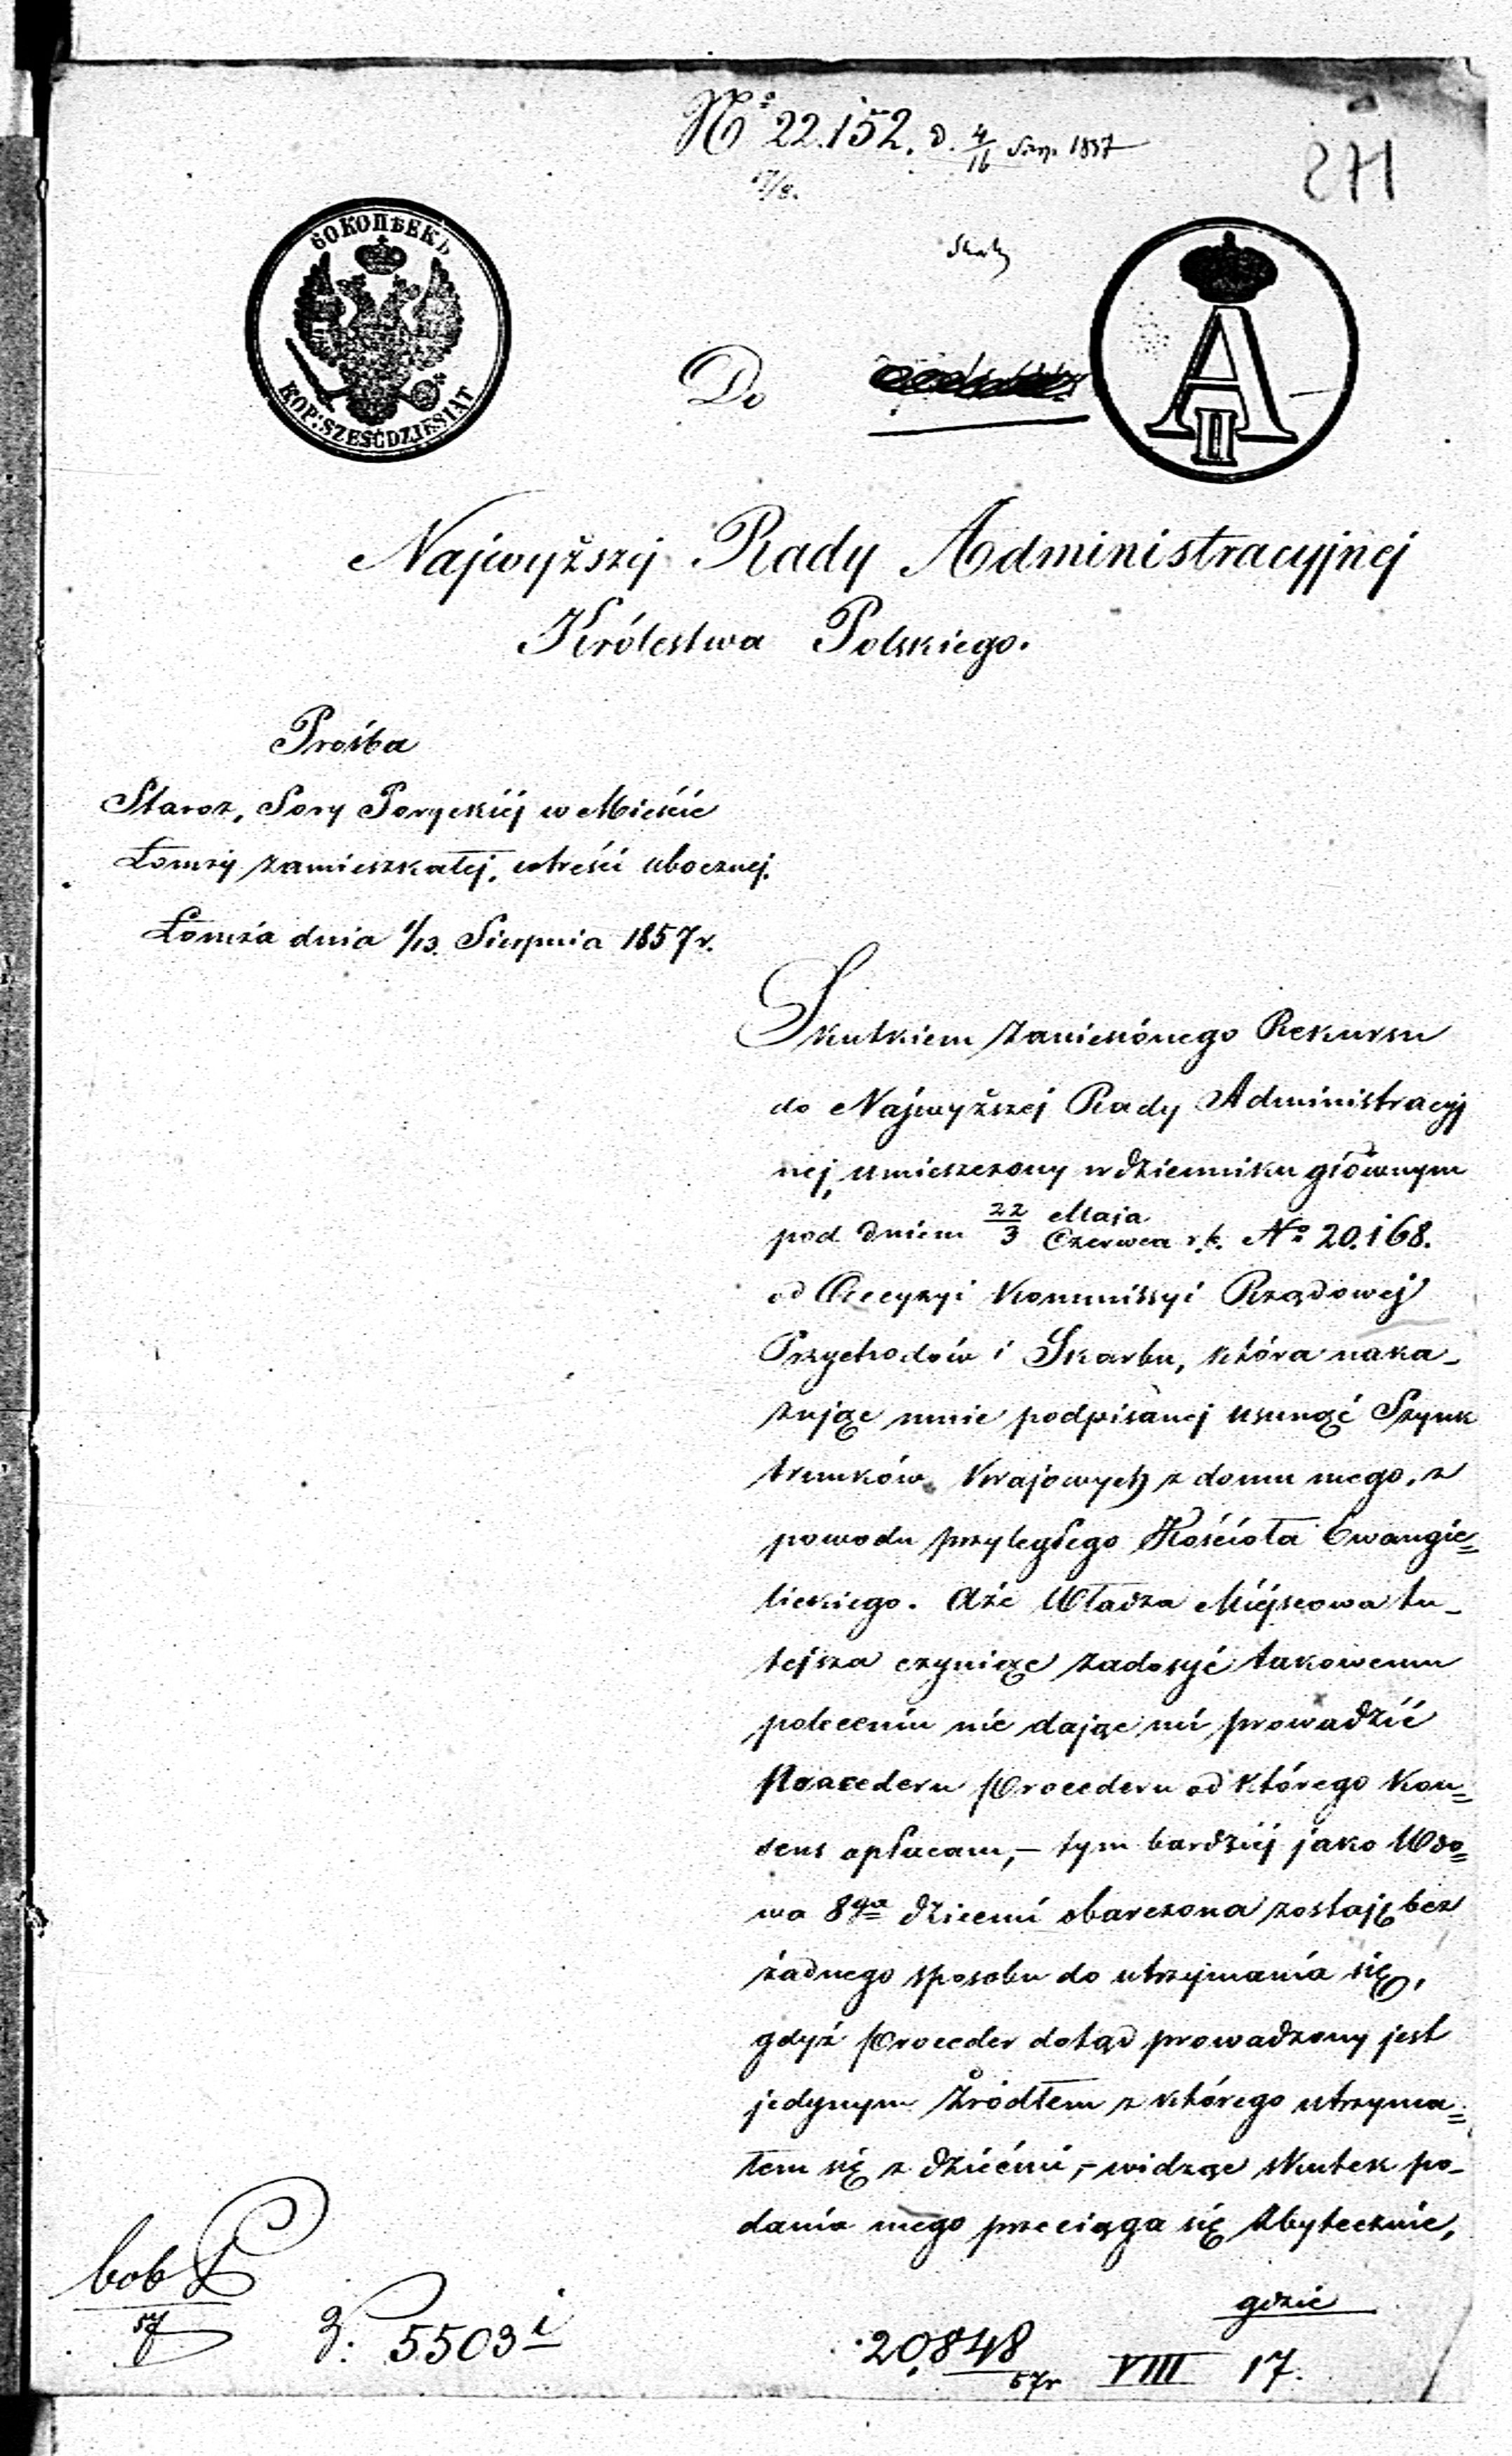 No 22.152. d. 4/16 Sierp. 1857
17/8.
271
60 КОПѢЕКЪ
KOP: SZESĆDZIESIĄT
A II
Do
Najwyższej Rady Administracyjnej
Królestwa Polskiego.
Prośba
Staroz, Sory Poryckiéj w Mieście
Łomży zamieszkałej, wtreści ubocznej.
Łomża dnia 1/13. Sierpnia 1857 r.
Skutkiem zaniesionego Rekursu
do Najwyższej Rady Administracyj
nej, umieszczony w dzienniku głównym
pod dniem 22/3 Maja/Czerwca r.b. No 20.168.
od Decyzyi Kommissyi Rządowej
Przychodów i Skarbu, która naka-
zując mnie podpisanej usunąć Szynk
trunków Krajowych z domu mego, z
powodu przyległego Kościoła Ewangie=
lickiego. Aże Władza Miéjscowa tu-
tejsza czyniąc zadosyć takowemu
poleceniu nie dając mi prowadzić
Procederu Procederu od którego Kon=
sens opłacam,- tym bardziéj jako Wdo=
wa 8ga dziećmi obarczona zostaję bez
żadnego sposobu do utrzymania się,
gdyż Proceder dotąd prowadzony jest
jedynym Źródłem z którego utrzyma=
łem się z dziećmi,- widząc skutek po-
dania mego przeciąga się Zbytecznie,
gdzie
57
5503 i
20,848
57r VIII 17.